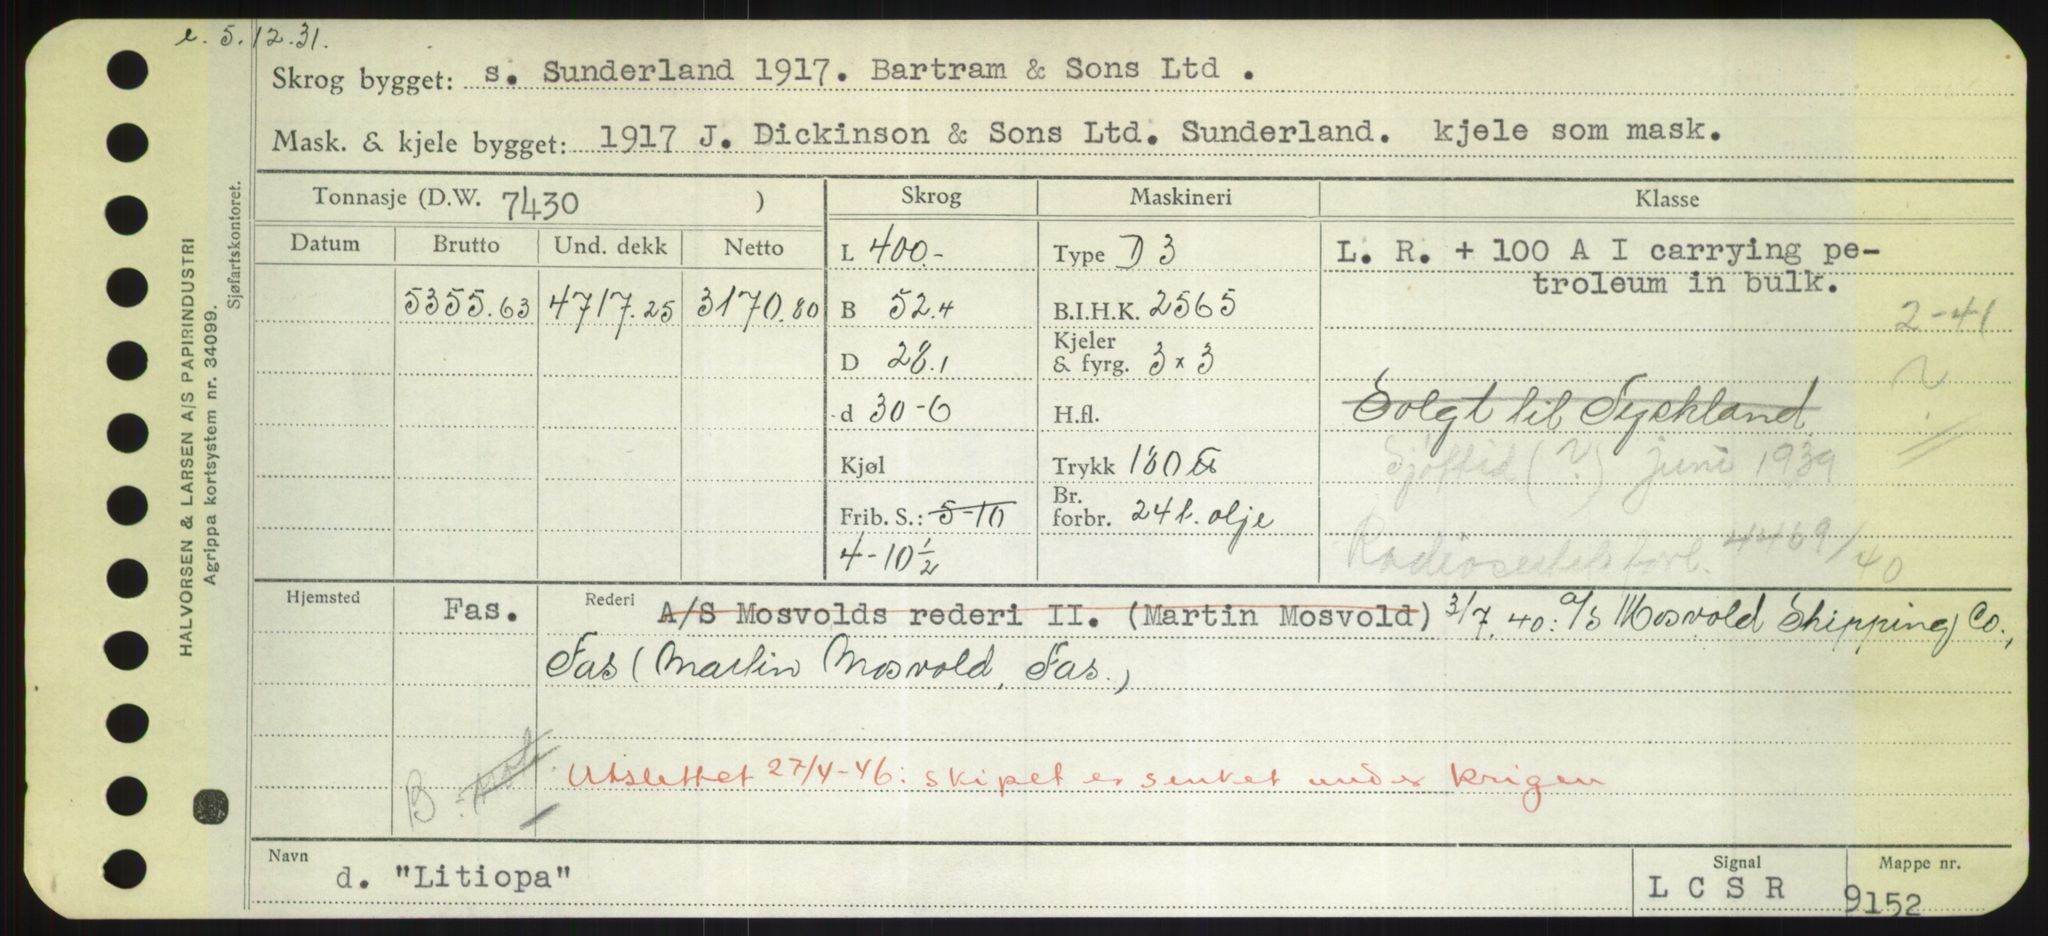 e. 5.12.31.
Skrog bygget: s. Sunderland 1917. Bartram & Sons Ltd .
Mask. & kjele bygget: 1917 J. Dickinson & Sons Ltd. Sunderland. kjele som mask.
Tonnasje (D.W. 7430 )
Skrog
Maskineri
Klasse
Datum Brutto Und. dekk Netto
5355.63 4717.25 3170.80
L 400.-
B 52.4
D 28.1
d 30-6
Kjøl
Frib. S.: 5-10
4-10 1/2
Type D 3
B.I.H.K. 2565
Kjeler
& fyrg. 3 x 3
H.fl.
Trykk 180
Br.
forbr. 24 t. olje
L. R. + 100 A I carrying pe-
troleum in bulk.
2-41
Solgt til Tyskland
(?) juni 1939
4469/40
Hjemsted Fas. Rederi A/S Mosvolds rederi II. (Martin Mosvold) 3/7.40: A/S Mosvold Shipping Co.,
Fas (Martin Mosvold, Fas.)
B
Utslettet 27/4-46: skipet er senket under krigen
Navn d. "Litiopa"
Signal L C S R
Mappe nr. 9152
HALVORSEN & LARSEN A/S PAPIRINDUSTRI
Agrippa kortsystem nr. 34099.
Sjøfartskontoret.